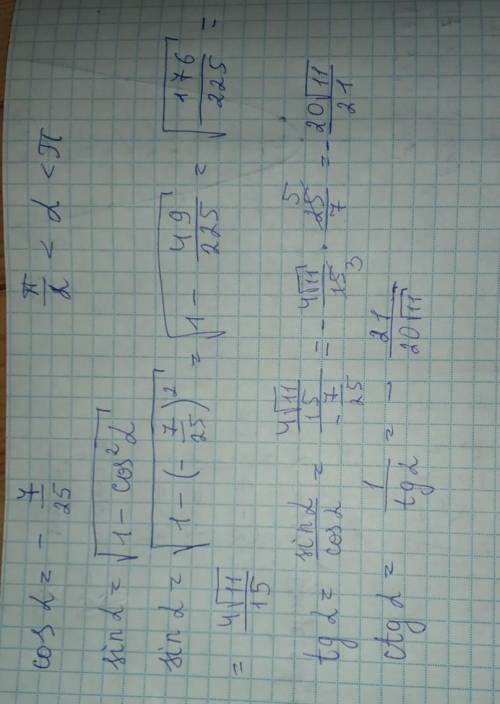 cos α = - 7/25   π/2 < α < π
sin α = √(1 - cos² α)
sin α = √(1 - (-7/25)²) = √(1 - 49/225) = √(176/225) =
= 4√11/15
tg α = sin α/cos α = (4√11/15)/(-7/25) = - 4√11/15 3 · 5 25/7 = - 20√11/21
ctg α = 1/tg α = - 21/20√11